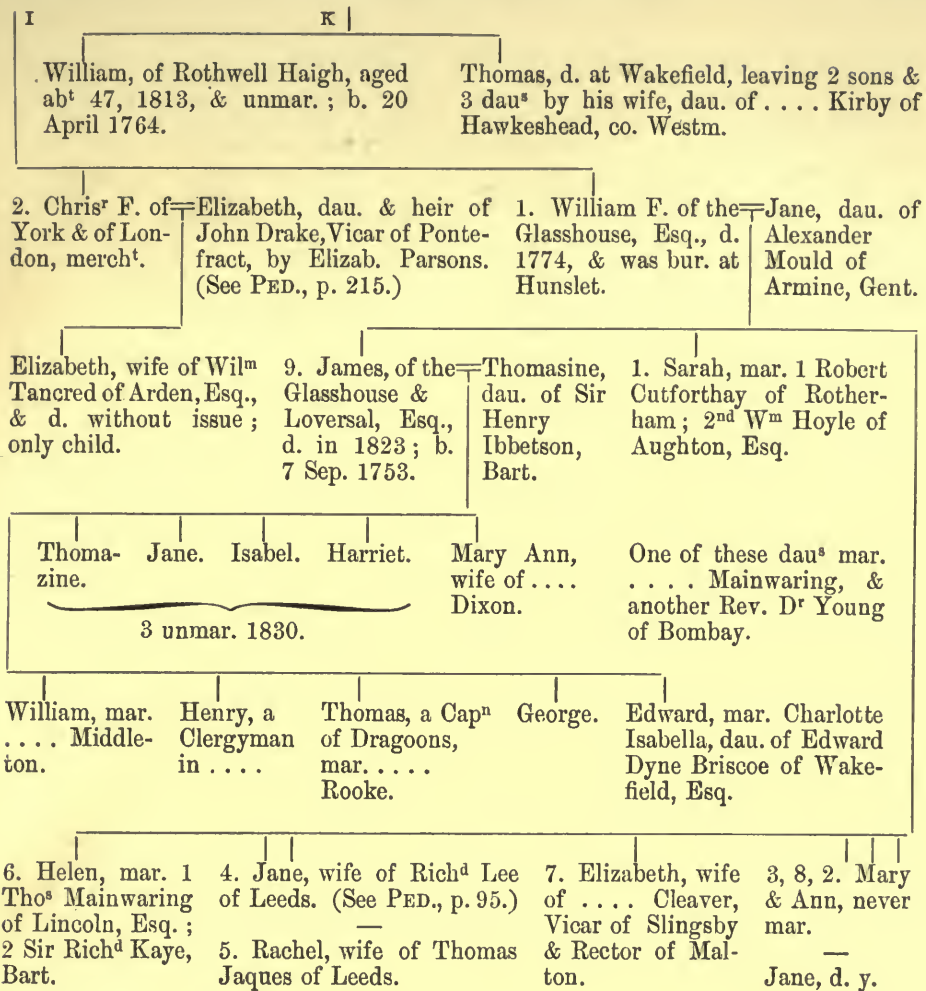 I K
William, of Rothwell Haigh, aged
abᵗ 47, 1813, & unmar. ; b. 20
April 1764.
Thomas, d. at Wakefield, leaving 2 sons &
3 dauˢ by his wife, dau. of . . . . Kirby of
Hawkeshead, co. Westm.
2. Chrisʳ F. of
York & of Lon-
don, merchᵗ.
Elizabeth, dau. & heir of
John Drake, Vicar of Ponte-
fract, by Elizab. Parsons.
(See PED., p. 215.)
1. William F. of the
Glasshouse, Esq., d.
1774, & was bur. at
Hunslet.
Jane, dau. of
Alexander
Mould of
Armine, Gent.
Elizabeth, wife of Wilᵐ
Tancred of Arden, Esq.,
& d. without issue ;
only child.
9. James, of the
Glasshouse &
Loversal, Esq.,
d. in 1823 ; b.
7 Sep. 1753.
Thomasine,
dau. of Sir
Henry
Ibbetson,
Bart.
1. Sarah, mar. 1 Robert
Cutforthay of Rother-
ham ; 2ⁿᵈ Wᵐ Hoyle of
Aughton, Esq.
Thoma-
zine.
Jane. Isabel. Harriet.
3 unmar. 1830.
Mary Ann,
wife of . . . .
Dixon.
One of these dauˢ mar.
. . . . Mainwaring, &
another Rev. Dʳ Young
of Bombay.
William, mar.
. . . . Middle-
ton.
Henry, a
Clergyman
in . . . .
Thomas, a Capⁿ
of Dragoons,
mar. . . . .
Rooke.
George.
Edward, mar. Charlotte
Isabella, dau. of Edward
Dyne Briscoe of Wake-
field, Esq.
6. Helen, mar. 1
Thoˢ Mainwaring
of Lincoln, Esq. ;
2 Sir Richᵈ Kaye,
Bart.
4. Jane, wife of Richᵈ Lee
of Leeds. (See PED., p. 95.)
—
5. Rachel, wife of Thomas
Jaques of Leeds.
7. Elizabeth, wife
of . . . . Cleaver,
Vicar of Slingsby
& Rector of Mal-
ton.
3, 8, 2. Mary
& Ann, never
mar.
—
Jane, d. y.